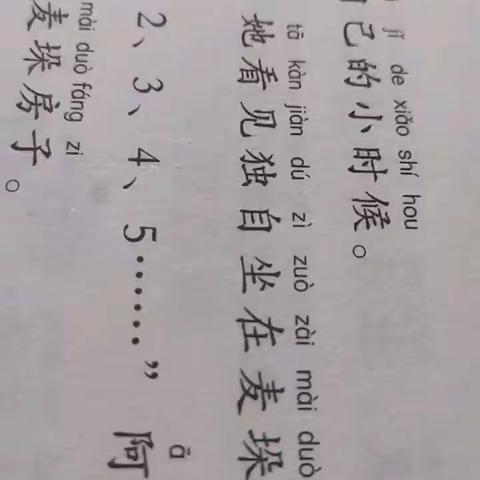 jǐ de xiǎo shí hou
己的小时候。
tā kàn jiàn dú zì zuò zài mài duò
她看见独自坐在麦垛
ā
2、3、4、5……” 阿
mài duò fáng zi
麦垛房子。